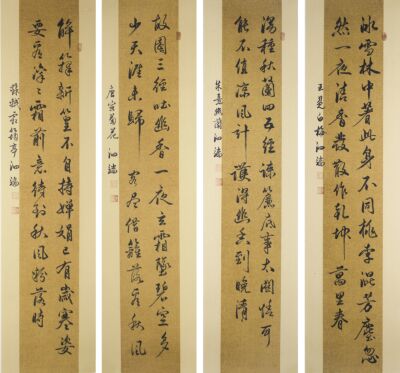 冰雪林中著此身不同桃李混芳塵忽
然一夜清香發散作乾坤萬里春
王冕白梅 沁瑞
漫種秋蘭四五莖疎簾底事太關情可
能不作涼風計護得幽香到晚清
朱熹蘭 沁瑞
故園三徑吐幽叢一夜玄霜墜碧空多
少天涯未歸客盡借籬落看秋風
唐寅菊花 沁瑞
解籜新篁不自持嬋娟已有歲寒姿
要看凜凜霜前意須待秋風粉落時
張栻霜筠亭 沁瑞